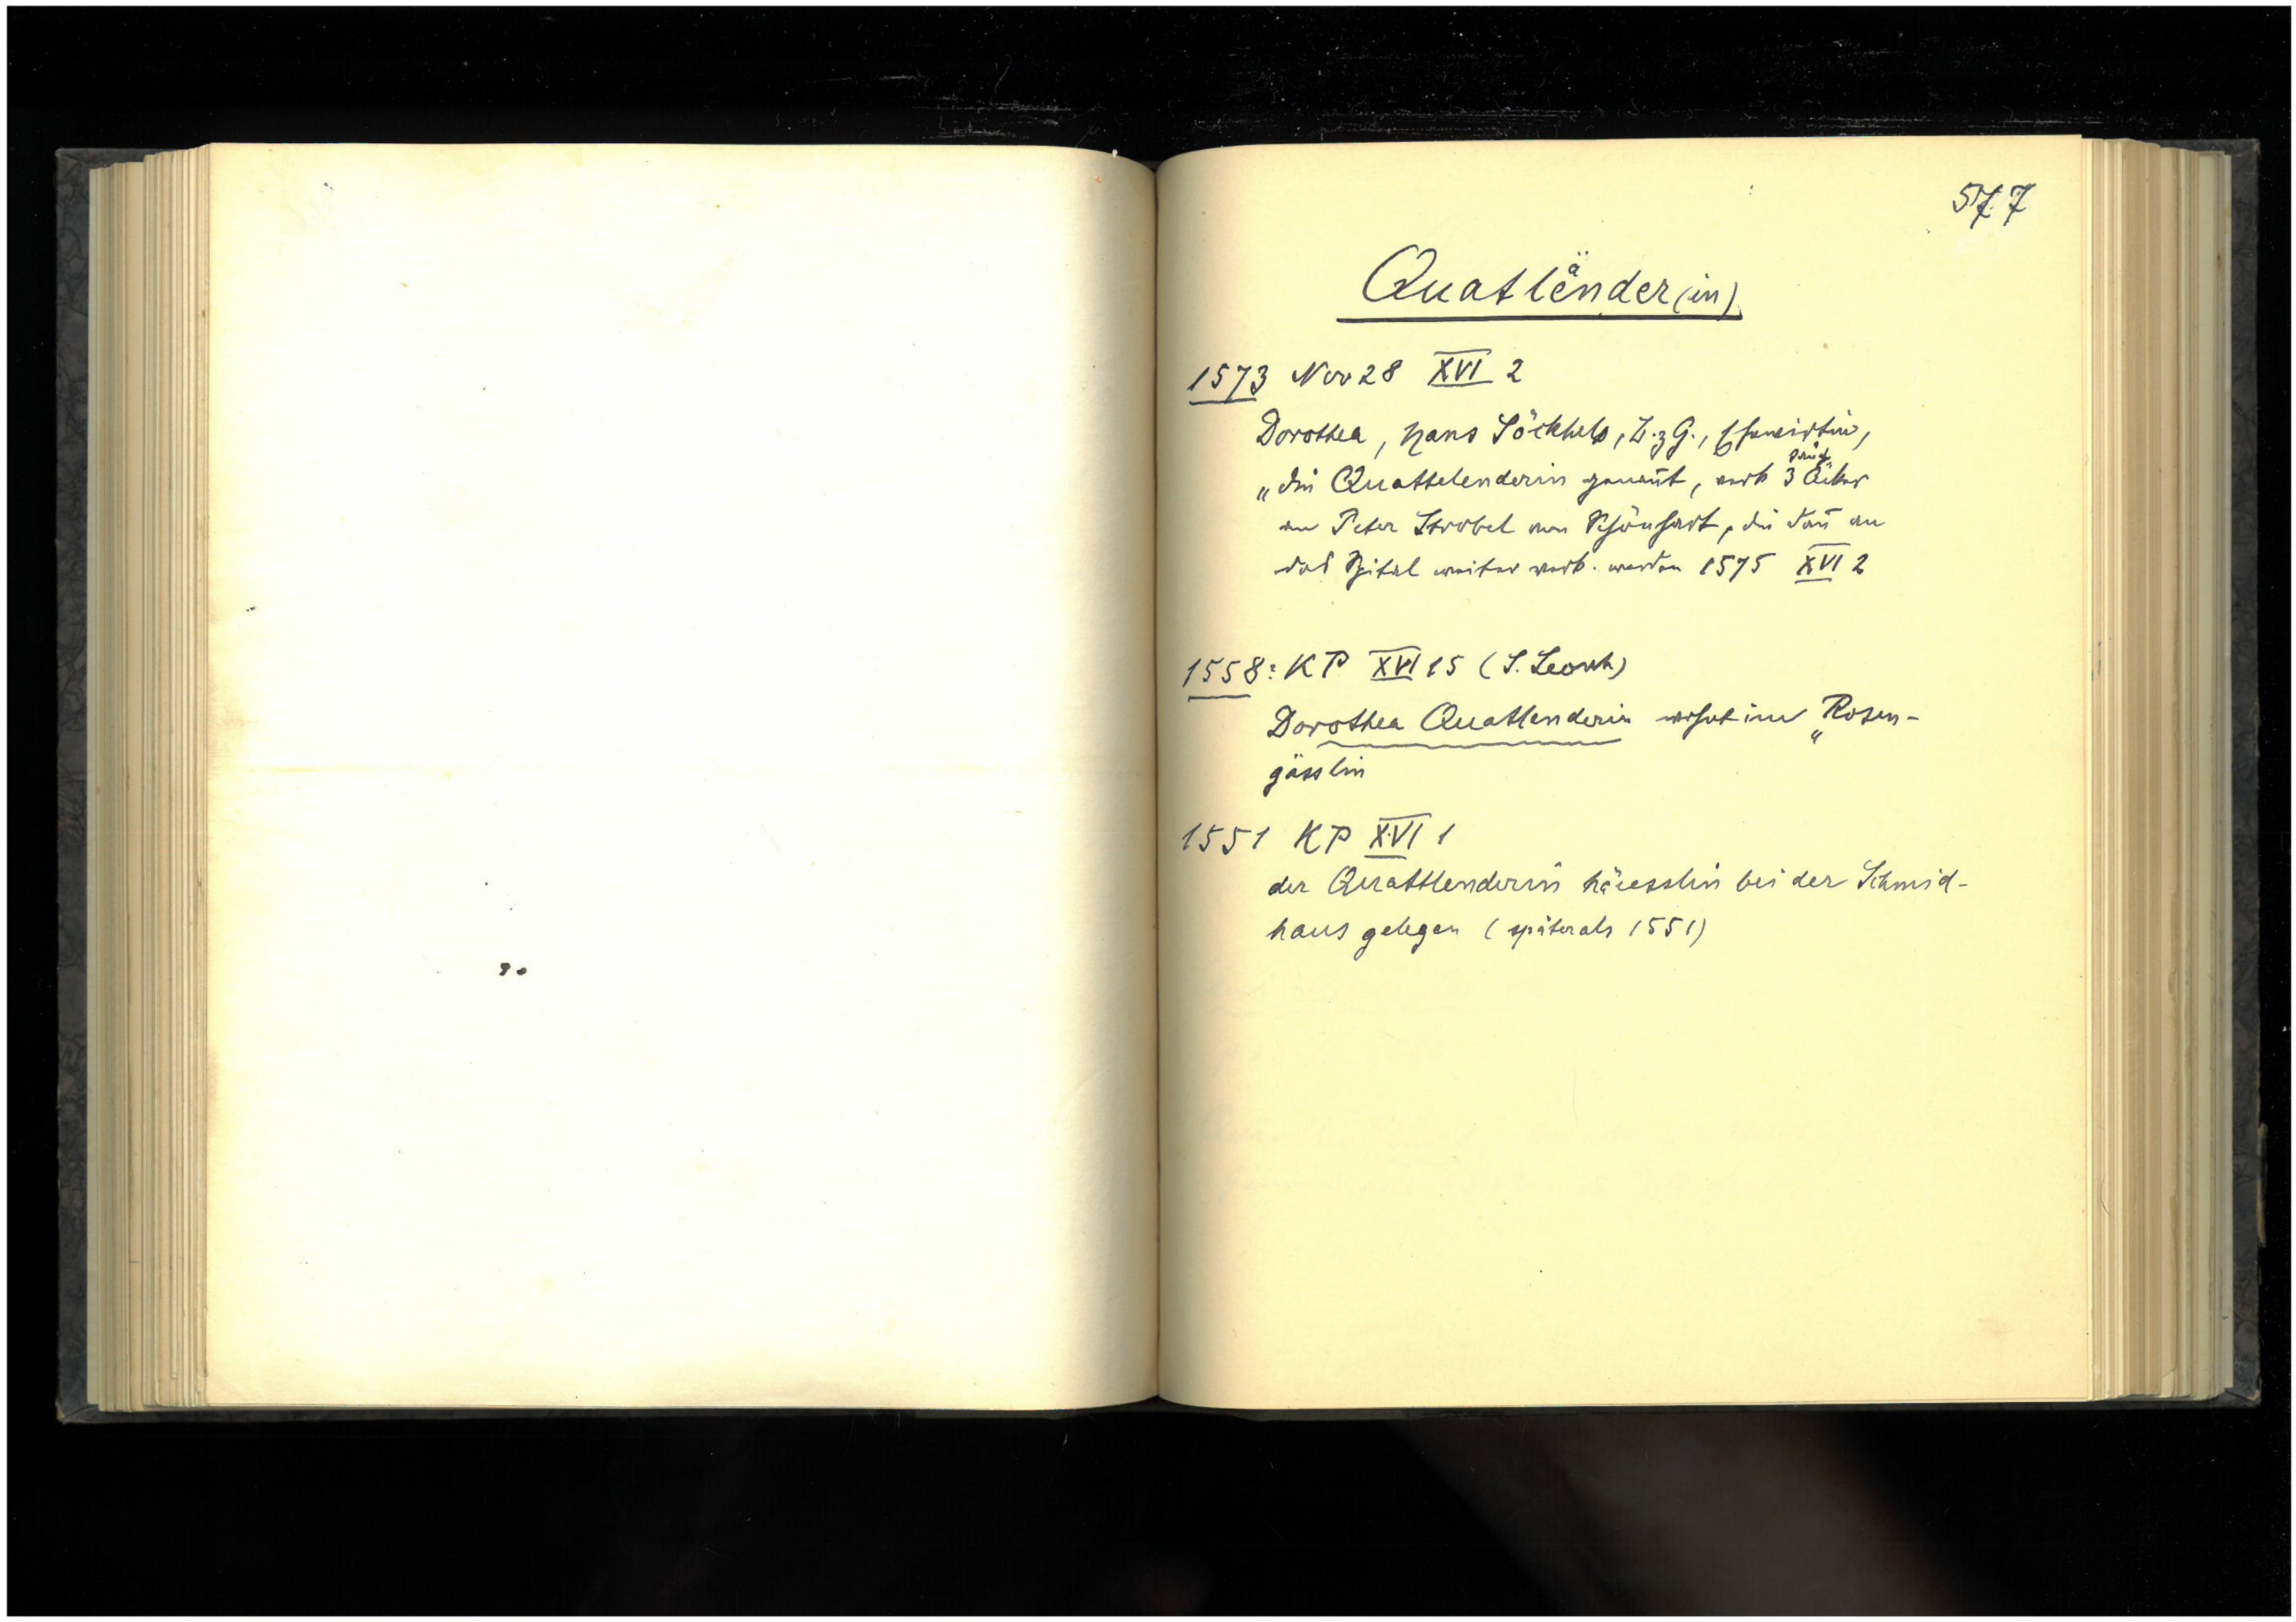 577
Quatländer(in)
1573 Nov 28 XVI 2
Dorothea, Hans Söckhels, B. z G., Ehewirtin,
„die Quattelenderin genañt, verk 3 Äcker
an Peter Strobel von Schönhart, die dañ an
das Spital weiter verk. werden 1575 XVI 2
1558: KP XVI 15 (S. Leonh)
Dorothea Quattlenderin wohnt im „Rosen-
gässlin
1551 KP XVI 1
der Quattlenderin häusslin bei der Schmid-
haus gelegen (später als 1551)